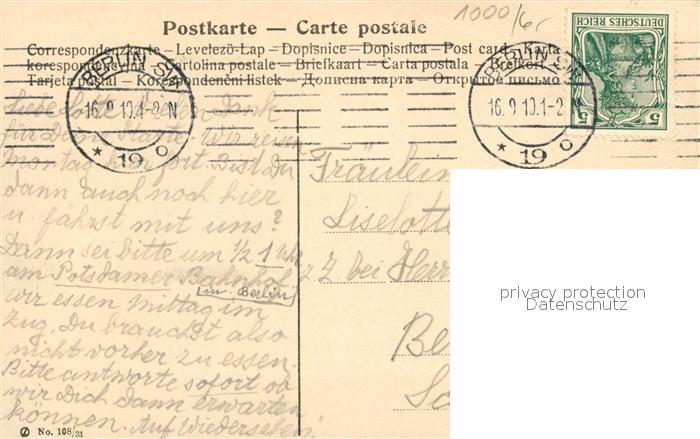 1000/6,-
Postkarte — Carte postale
Correspondenzkarte – Levelező-Lap – Dopisnice – Dopisnica – Post card – Karta
korespondencyjna Cartolina postale – Briefkaart – Carta postala – Brefkort
Tarjeta postal – Korespondenční listek – Дописна карта – Открытое письмо
BERLIN SW
16.9.10.1-2 N
* 19 c
BERLIN SW
16.9.10.1-2 N
* 19 c
5 DEUTSCHES REICH 5
Liebe Lotte, vielen Dank
für Deine Karte. Wir reisen
Montag fort. Bist Du
dann auch noch hier
u. fährst mit uns?
Dann sei bitte um ½ 1 Uhr
am Potsdamer Bahnhof,
(in Berlin)
wir essen Mittag im
Zug. Du brauchst also
nicht vorher zu essen.
Bitte antworte sofort ob
wir Dich dann erwarten
können. Auf Wiedersehen!
Fräulein
Liselotte
z. Z. bei Herr
Be
No. 108/31
privacy protection
Datenschutz